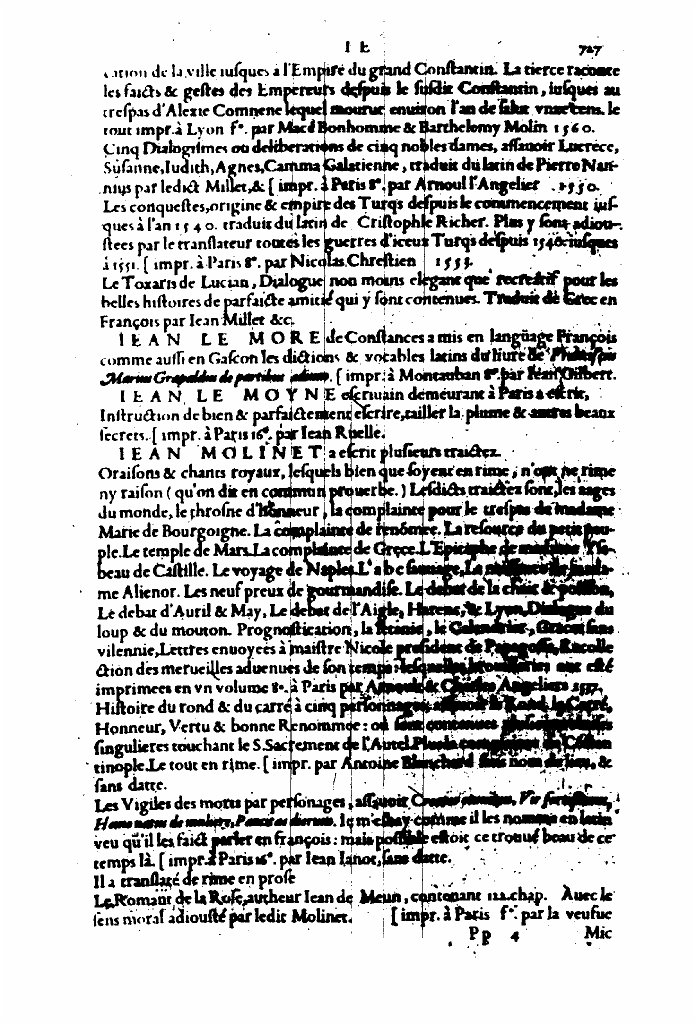 I E 727
cation de la ville iusques a l'Empire du grand Constantin. La tierce raconte
les faicts & gestes des Empereurs despuis le susdit Constantin, iusques au
trespas d'Alexie Comnene lequel mourut enuiron l'an de salut vnze cens. le
tout impr. à Lyon fº. par Macé Bonhomme & Barthelemy Molin 1560.
Cinq Dialogismes ou deliberations de cinq nobles dames, assauoir Lucrece,
Susanne, Iudith, Agnes, Camma Galatienne, traduit du latin de Pierre Nan-
nius par ledict Millet, & [ impr. à Paris 8º. par Arnoul l'Angelier . 1550.
Les conquestes, origine & empire des Turqs despuis le commencement ius-
ques à l'an 1540. traduit du latin de Cristophle Richer. Plus y sont adiou-
stees par le translateur toutes les guerres d'iceux Turqs despuis 1540 iusques
à 1551. [ impr. à Paris 8º. par Nicolas Chrestien 1553.
Le Toxaris de Lucian, Dialogue non moins elegant que recreatif pour les
belles histoires de parfaicte amitié qui y sont contenues. Traduit de Grec en
François par Iean Millet &c.
IEAN LE MORE de Constances a mis en langüage François
comme aussi en Gascon les dictions & vocables latins du liure de
Marius Grapaldus de partibus ædium. [ impr. à Montauban 8º. par Iean Gilbert.
IEAN LE MOYNE escriuain demeurant à Paris a escrit,
Instruction de bien & parfaictement escrire, tailler la plume & autres beaux
secrets. [ impr. à Paris 16º. par Iean Ruelle.
IEAN MOLINET a escrit plusieurs traictez.
Oraisons & chants royaux, lesquels bien que soyent en rime, n'ont ne rime
ny raison ( qu'on dit en commun prouerbe. ) Lesdicts traictez sont, les aages
du monde, le throsne d'Honneur, la complainte pour le trespas de madame
Marie de Bourgoigne. La complainte de renõmee. La resource du petit peu-
ple. Le temple de Mars. La complainte de Grece. L'Epitaphe de madame Ysa-
beau de Castille. Le voyage de Naples. L'abc sauuage, La
me Alienor. Les neuf preux de gourmandise. Le debat de la chair & poisson,
Le debat d'Auril & May, Le debat de l'Aigle, Harenc, & Lyon, Dialogue du
loup & du mouton. Prognostication, la letanie, le Calendrier, Graces sans
vilennie, Lettres enuoyees à maistre Nicole president de Papagosse, Recolle
ction des merueilles aduenues de son temps: lesquelles ont esté
imprimees en vn volume 8º. à Paris par Arnoul & Charles Angeliers 1537.
Histoire du rond & du carré à cinq personnages, assauoir le Rond, le Carré,
Honneur, Vertu & bonne Renommee: où sont contenues
singulieres touchant le S. Sacrement de l'Autel. Plus la complainte de Côstan
tinople. Le tout en rime. [ impr. par Antoine Blanchard sans nom de lieu, &
sans datte.
Les Vigiles des morts par personages, assauoir Creator omnium, Vir fortissimus,
Homo natus de muliere, Paucitas dierum. Ie m'esbay comme il les nomme en latin
veu qu'il les faict parler en françois: mais possible estoit ce trouué beau de ce
temps là. [ impr. à Paris 16º. par Iean Ianot, sans datte.
Il a translaté de rime en prose
Le Romant de la Rose, autheur Iean de Meun, contenant 122. chap. Auec le
sens moral adiousté par ledit Molinet. [ impr. à Paris fº. par la veufue
Pp 4 Mic